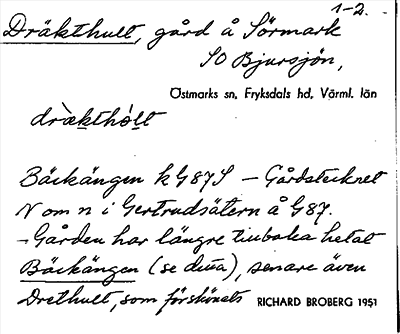 1-2.
Dräkthult, gård å Sörmark
SO Bjursjön,
Östmarks sn, Fryksdals hd, Värml. län
dràkthòlt
Bäckängen k G87S – Gårdstecknet
N om n i Gertrudsätern å G87.
-Gården har längre tillbaka hetat
Bäckängen (se detta), senare även
Drethult, som förskönats RICHARD BROBERG 1951